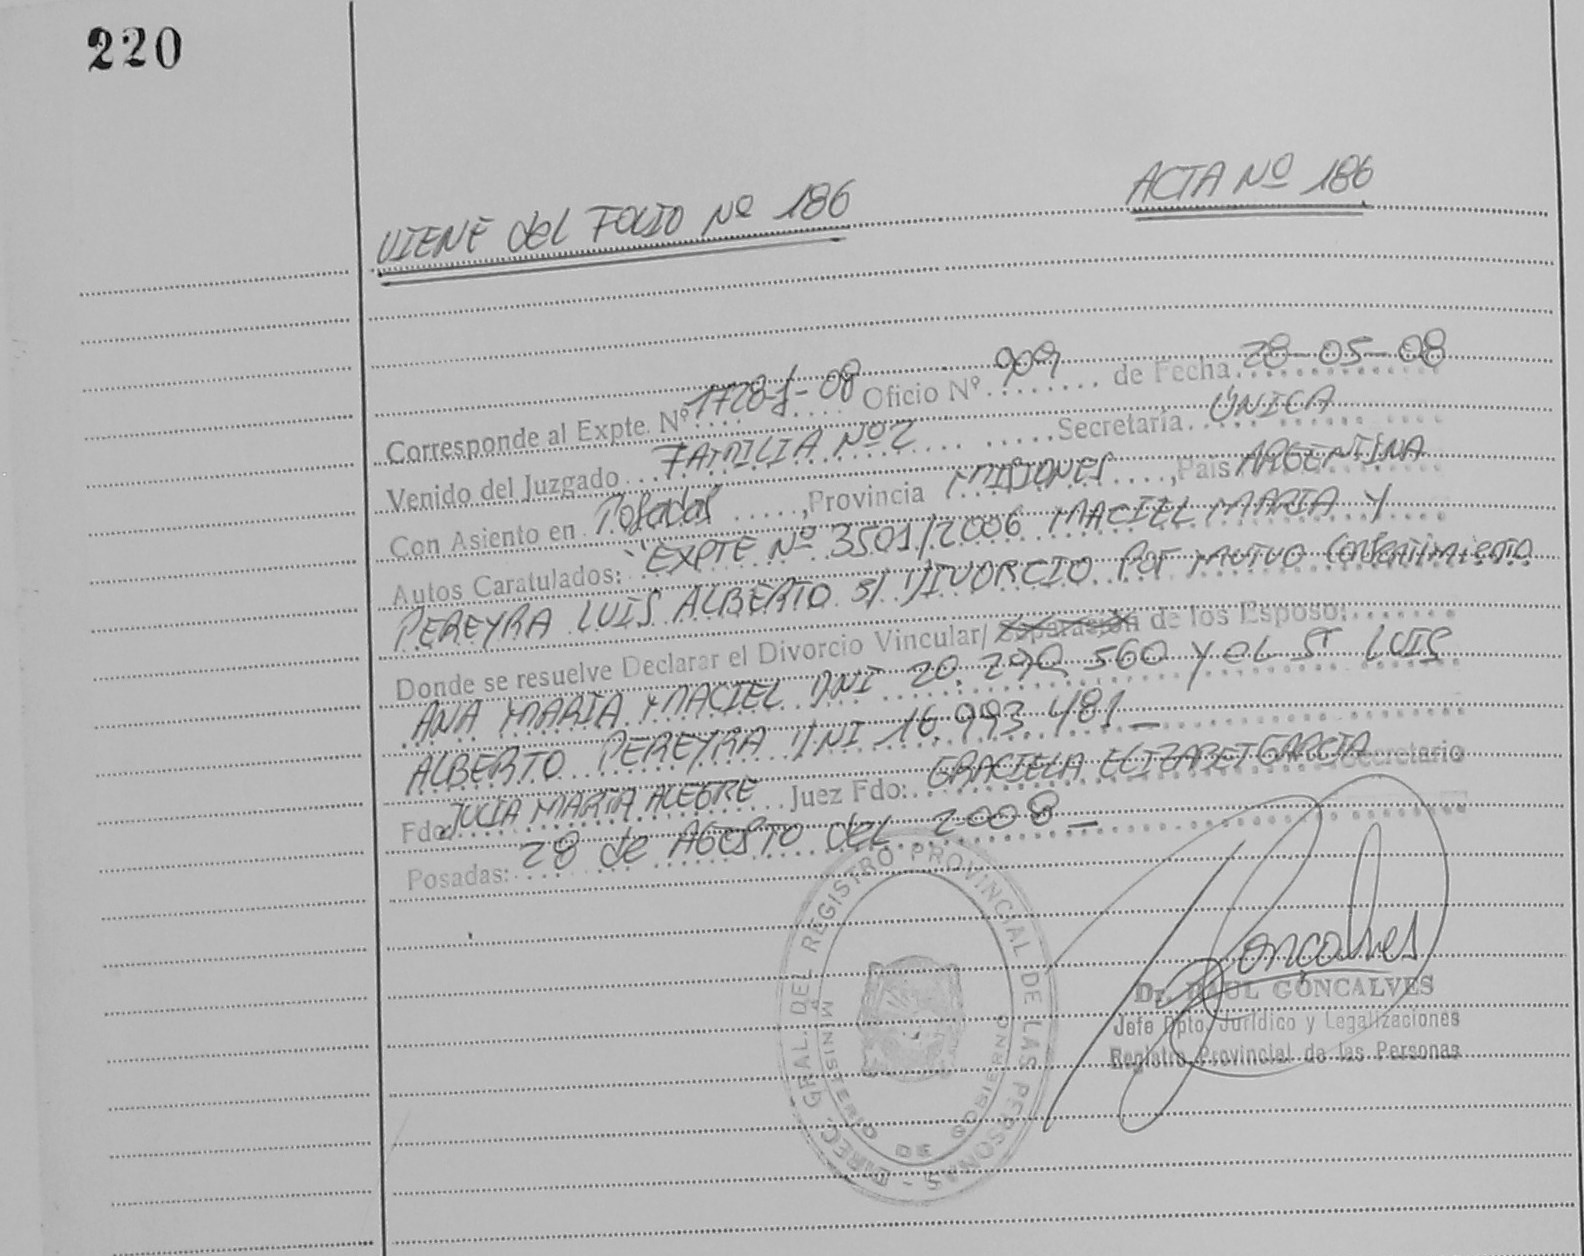 220
VIENE del FOLIO Nº 186
ACTA Nº 186
Corresponde al Expte. Nº 1728-J-08 Oficio Nº 909 de Fecha 28-05-08
Venido del Juzgado FAMILIA Nº 2 Secretaría ÚNICA
Con Asiento en Posadas, Provincia MISIONES, País ARGENTINA
Autos Caratulados: "EXPTE Nº 3501/2006 MACIEL MARIA Y
PEREYRA LUIS ALBERTO S/ DIVORCIO Por MUTUO Consentimiento
Donde se resuelve Declarar el Divorcio Vincular/ Separación de los Esposo:
ANA MARIA MACIEL DNI 20.290.560 Y el Sr LUIS
ALBERTO PEREYRA DNI 16.993.481_
Fdo JULIA MARTA ALEGRE Juez Fdo: GRACIELA ELIZABET GARCIA Secretario
Posadas: 28 de AGOSTO del 2008_
DIREC. GRAL. DEL REGISTRO PROVINCIAL DE LAS PERSONAS -
MINISTERIO DE GOBIERNO
Goncalves
Dr. RAUL GONCALVES
Jefe Dpto. Jurídico y Legalizaciones
Registro Provincial de las Personas